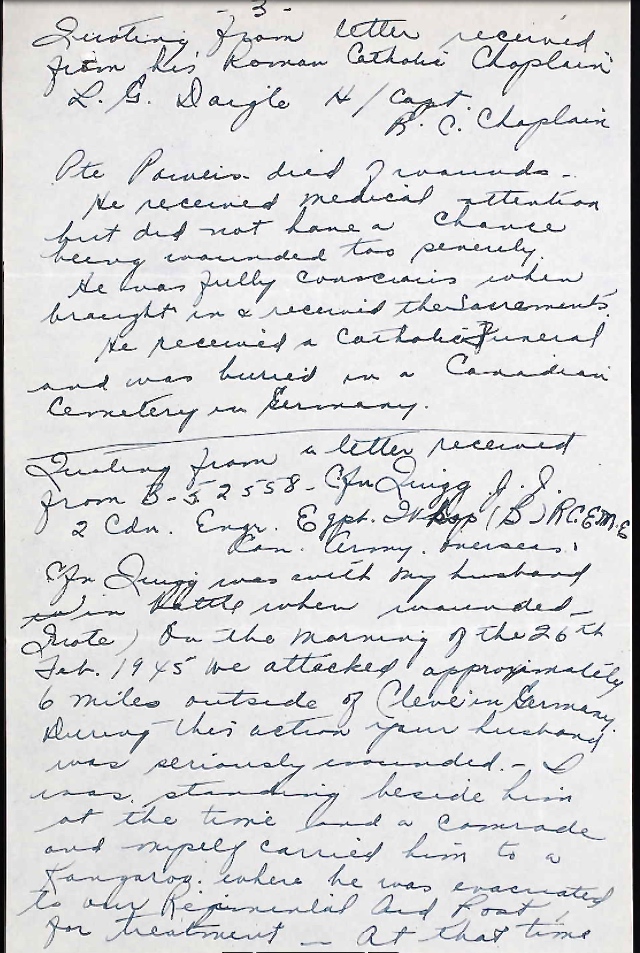 - 3 -
Quoting from letter received
from his Roman Catholic Chaplain
L. G. Daigle H/Capt.
R. C. Chaplain
Pte Powers died of wounds -
He received medical attention
but did not have a chance
being wounded too severely.
He was fully conscious when
brought in & received the Sacraments.
He received a Catholic Funeral
and was buried in a Canadian
Cemetery in Germany.
Quoting from a letter received
from B-52558 - Cfn Quigg J. J.
2 Cdn. Engr. Eqpt. Wksp (B) R.C.E.M.E
Can. Army. Overseas.
Cfn Quigg was with my husband
in Battle when wounded -
Quote) On the morning of the 26th
Feb. 1945 we attacked approximately
6 miles outside of Cleve in Germany.
During this action your husband
was seriously wounded. - I
was standing beside him
at the time and a comrade
and myself carried him to a
Kangaroo. where he was evacuated
to our Regimental Aid Post,
for treatment - At that time